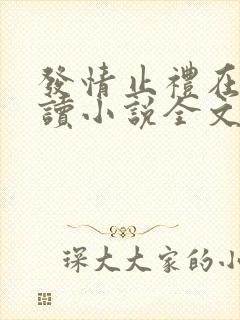 發情止禮在
讀小説全文
琛大大家的小